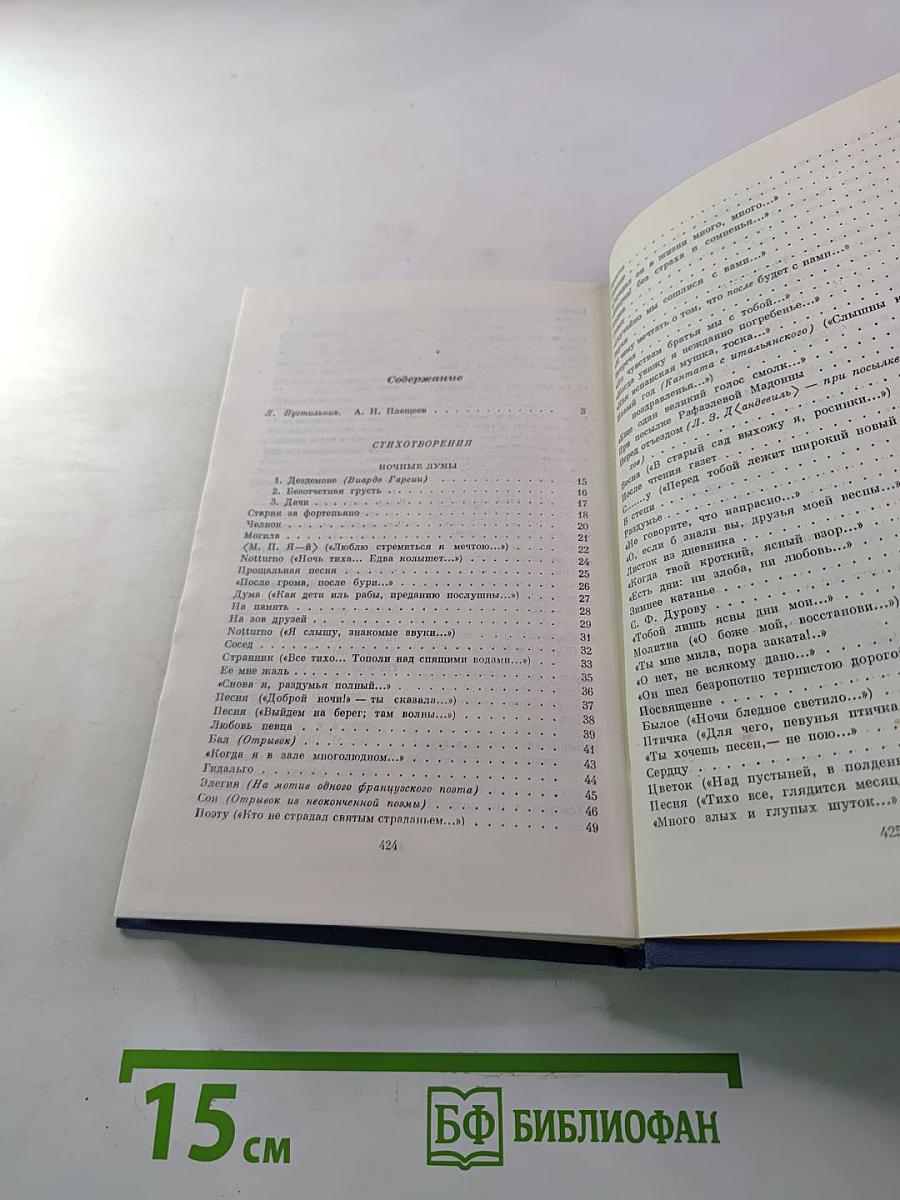 Содержание
Л. Пустильник. А. Н. Плещеев . . . . . . . . . . 3
СТИХОТВОРЕНИЯ
НОЧНЫЕ ДУМЫ
1. Дездемоне (Виардо Гарсии) . . . . . . . . . . 15
2. Безотчетная грусть . . . . . . . . . . 16
3. Дачи . . . . . . . . . . 17
Старик за фортепьяно . . . . . . . . . . 18
Челнок . . . . . . . . . . 20
Могила . . . . . . . . . . 21
〈М. П. Я—й〉 («Люблю стремиться я мечтою...») . . . . . 22
Notturno («Ночь тиха... Едва колышет...») . . . . . . . 24
Прощальная песня . . . . . . . . . . 25
«После грома, после бури...» . . . . . . . . . . 26
Дума («Как дети иль рабы, преданию послушны...») . . . . 27
На память . . . . . . . . . . 28
На зов друзей . . . . . . . . . . 29
Notturno («Я слышу, знакомые звуки...») . . . . . . . 31
Сосед . . . . . . . . . . 32
Странник («Все тихо... Тополи над спящими водами...») . . . 33
Ее мне жаль . . . . . . . . . . 35
«Снова я, раздумья полный...» . . . . . . . . . . 36
Песня («Доброй ночи!» — ты сказала...») . . . . . . . 37
Песня («Выйдем на берег; там волны...») . . . . . . . 38
Любовь певца . . . . . . . . . . 39
Бал (Отрывок) . . . . . . . . . . 41
«Когда я в зале многолюдном...» . . . . . . . . . . 43
Гидальго . . . . . . . . . . 44
Элегия (На мотив одного французского поэта) . . . . . . 45
Сон (Отрывок из неоконченной поэмы) . . . . . . . . 46
Поэту («Кто не страдал святым страданьем...») . . . . . . 49
424
он в жизни много, много...»
без страха и сомненья...»
мы сошлися с вами...»
мечтать о том, что после будет с нами...»
чувствам братья мы с тобой...»
увижу я нежданно погребенье...»
испанская мушка, тоска...»
год (Кантата с итальянского) («Слышны к
поздравленья...»)
один великий голос смолк...»
При посылке Рафаэлевой Мадонны
Перед отъездом (Л. З. Д〈андевиль〉 — при посылке
Весна («В старый сад выхожу я, росинки...»)
После чтения газет
С......у («Перед тобой лежит широкий новый
В степи
Раздумье
«Не говорите, что напрасно...»
«О, если б знали вы, друзья моей весны...»
Листок из дневника
«Когда твой кроткий, ясный взор...»
«Есть дни: ни злоба, ни любовь...»
Зимнее катанье
С. Ф. Дурову
«Тобой лишь ясны дни мои...»
Молитва («О боже мой, восстанови...»)
«Ты мне мила, пора заката!..»
«О нет, не всякому дано...»
«Он шел безропотно тернистою дорогой
Посвящение
Былое («Ночи бледное светило...»)
Птичка («Для чего, певунья птичка
«Ты хочешь песен,— не пою...»
Сердцу
Цветок («Над пустыней, в полдень
Песня («Тихо все, глядится месяц
«Много злых и глупых шуток...»
425
15 см
БФ БИБЛИОФАН